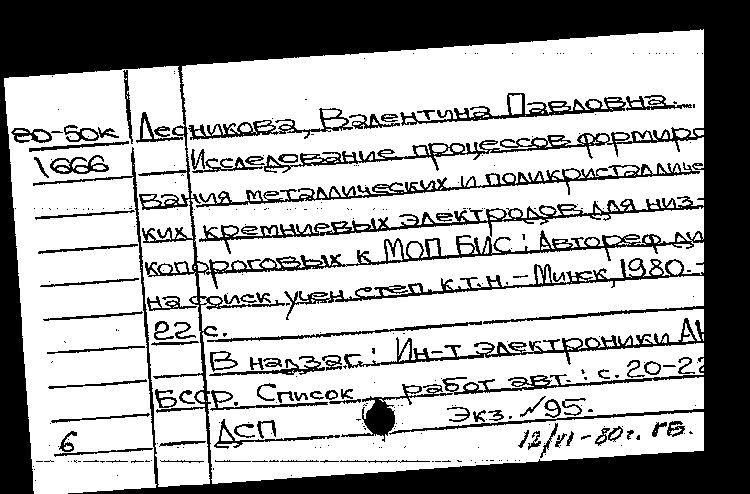 80-60к Лесникова, Валентина Павловна.
1666 Исследование процессов формиро
вания металлических и поликристалличе
ких кремниевых электродов для низ-
копороговых к МОП БИС: Автореф. ди
на соиск. учен. степ. к.т.н. – Минск, 1980. –
22 с.
В надзаг.: Ин-т электроники АН
БССР. Список работ авт.: с. 20-22
ДСП Экз. №95.
6 12/VI – 80 г. ГВ.